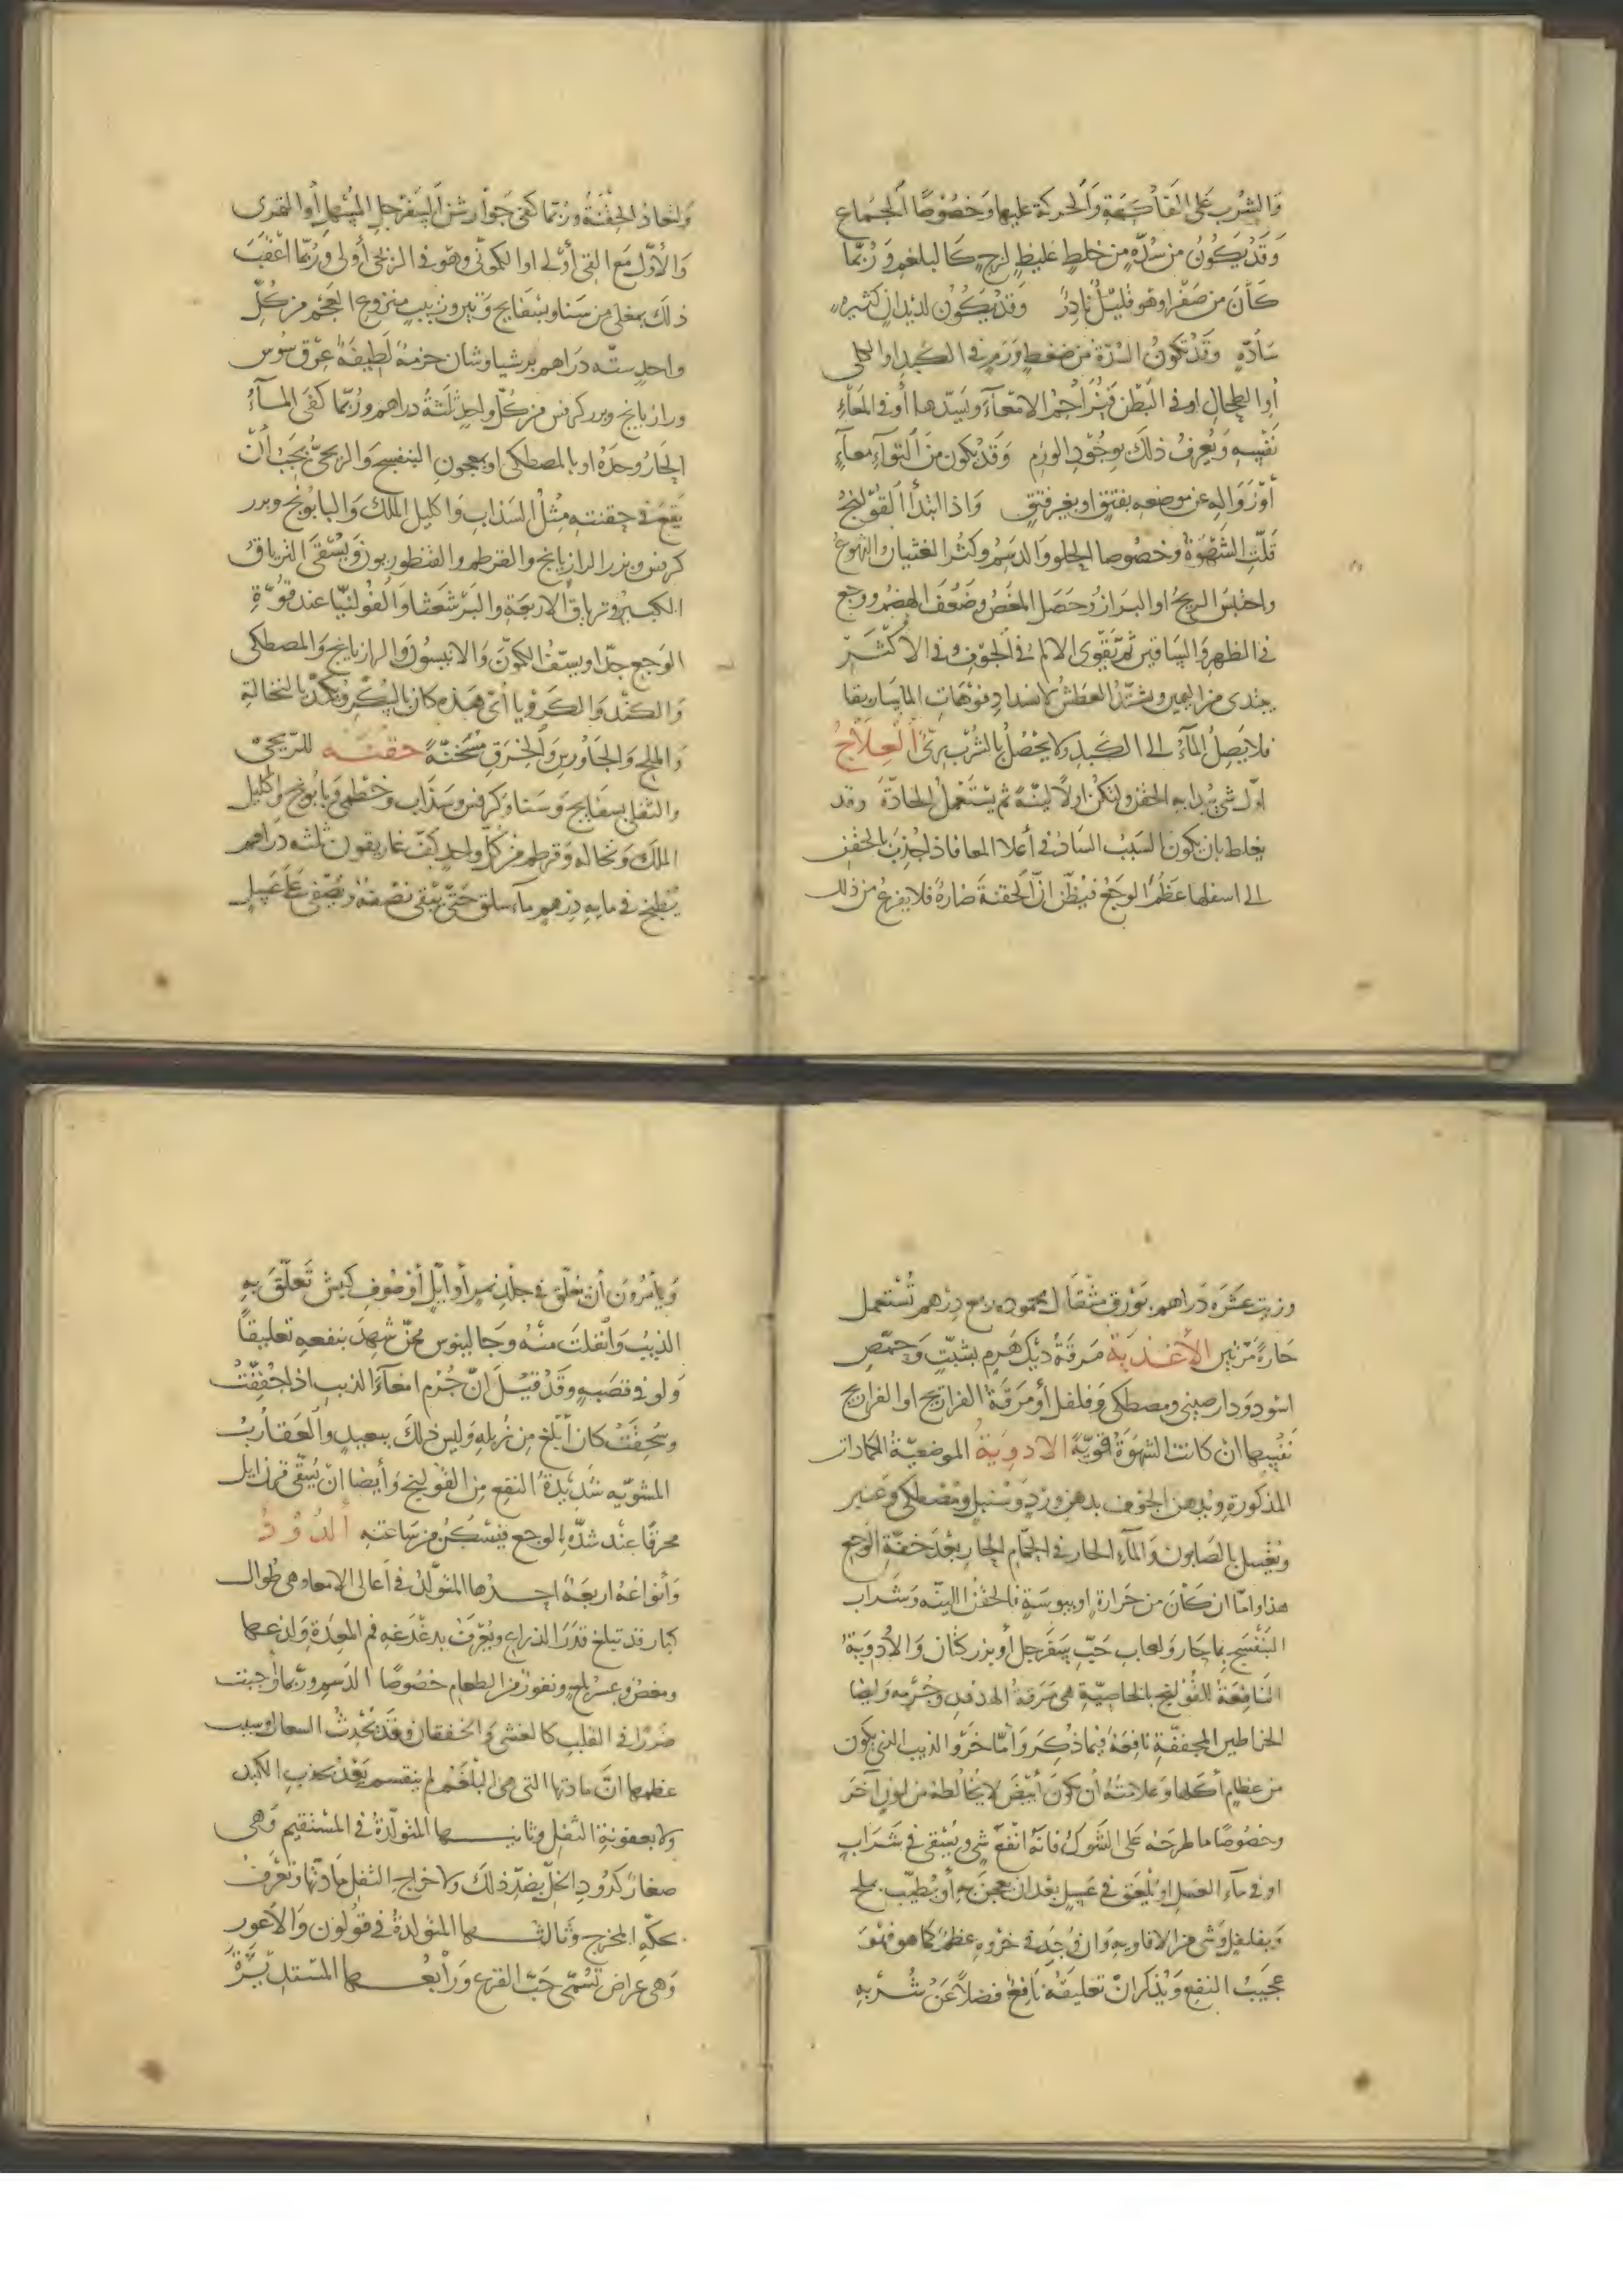 وَالشُرب عَلى الفَاكهَةِ وَالحركة عليها وَخصُوصًا الجمَاع
وَقَد يَكُونُ من سُدّةٍ من خلطٍ غليظٍ لزجٍ كالبلغم وَرُبّما
كَانَ من صَفْرا وهو قليلٌ نادِرٌ وَقَد يَكُون لديدانٍ كثيره
سَادّةٍ وَقَد تكونُ السُدّة من ضغطِ وَرَمٍ في الكبد او الكلى
أو الطحالِ او في البَطْن فيُزاحمُ الامعَآءَ ويَسدّها أو في المعَآءِ
نفْسِهِ وَيُعرفُ ذلك بوجُودِ الورَم وَقَد يكون من التوآءِ معآءٍ
أوْ زَوَالِهِ عن موضعهِ بفتقٍ او بغير فتقٍ وَاذا ابْتدأ القُولنجُ
قَلّت الشَهْوَةُ وخصُوصا الحلو والدَسِم وكثُر الغثيان والتهوع
واحتبسَ الريحُ او البرَازُ وحَصَل المغَصُ وضَعُفَ الهضم ووجع
في الظهرِ وَالسَاقين ثم تَقَوّى الالم في الجوْفِ وفي الأكثَر
يبتدى من اليمين ويشتدّ العطشُ لانسدادِ فوّهاتِ الماسَاريقا
فلا يَصِلُ المآءُ الى الكَبدِ ولا يحْصُلُ بالشُرْب رِىٌّ العِلَاجُ
اوّل شيْ يُبدا به الحقن ولتكن اولاً لينَةً ثم يسْتَعْمل الحادّة وقد
يغلط بان يكونَ السَبَبُ السَادُّ في أعلا المعا فاذا جُذبَ بالحقن
الى اسفلها عَظُمَ الوجَعُ فيُظّن انّ الحقنةَ ضارةٌ فلا يفزعُ من ذلك
وَاتخاذ الحِقنَةُ وَرُبّما كفى جَوَارشن السَفرْجل المُسْهل أو التمرى
وَالأوّل مَعَ القئ أولى او الكمونّى وهو في الريحىّ أولى ورُبّما اعْقَبَ
ذلك بمغلى من سَنا وبسْفايج وَتين وزبيبٍ منزوعِ العَجم من كُلّ
واحدٍ ستّه دَرَاهم برشياوشان حزمةٌ لَطيفَةٌ عِرْق سُوس
ورازيانج وبزر كرفس من كلّ واحدٍ ثلثَةُ دراهم ورُبّما كفَى المآءُ
الحَارُ وحدَهُ او بالمصطكى او معجونِ البنفسج وَالريحىُّ يَجبُ أنْ
يَقعَ في حقنتهِ مثْلُ السَذابِ وَاكليل الملك وَالبابُونج وبزر
كرفس وبزر الرازيانج والقرطم والقنطوريون وَيُسْقى الترياقُ
الكبير وترياق الاربعَة والبَرْشعَثا وَالفُولنيّا عند قوّةِ
الوَجع جدّا ويسفّ الكمونَ وَالانيسُونَ وَالرازيانج والمصطكى
وَالكنْدر وَالكَرَوْيا أىّ هَذه كان بالسُكّرِ ويُكمّد بالنخالةِ
والملح وَالجَاوُرسِ وَالخِرَقِ مُسَخّنَةً حقنَه للرّيحىّ
والثفلى بسفايج وَسَنا وكرفس وَسَذَاب وَخطْمى وَبابُونج وَاكليل
الملك وَنخاله وَقرطم من كلّ واحدٍ كفّ غاريقون ثلثه دراهم
يُطبخ في مايه درهم مآءَ سلق حَتّى يَبقى نصْفهُ ويُصَفّى عَلى عَسَلٍ
وزيت عشَرَه دَراهم بَوْرق مثقال محموده ربع درهم تُسْتَعمل
حَارةً مَرّتين الأغذيَةُ مَرقَةُ ديك هَرِم بشبتٍ وَحمّصٍ
اسود وَدارصينى ومصطكى وَفلفل أو مَرَقةُ الفراريج او الفراريج
نفْسِها ان كانت الشهْوَةُ قويّةً الادويَةُ الموضعيّةُ الكمادات
المذكورة ويُدهن الجوف بدهن وَردٍ وَسُنبلٍ ومصْطكى وعَنبر
ويُغْسل بالصَابون وَالمآءِ الحار في الحمّام الحار بعْدَ خفّةِ الوَجع
هذا وامّا ان كانَ من حَرارةٍ او يبوسَةٍ فالحقنُ اللينَه وَشراب
البَنفسَج بمآءٍ حارٍ وَلعاب حَبّ سفَرجل أو بزر كتّان وَالأدويَةُ
النَافعةُ للقُوْلنج بالخاصيّةِ هى مَرَقةُ الهدهد وجُرْمه وَايضا
الخراطين المجففةِ نافِعَة فيما ذُكِرَ وَأمّا خَرْو الذيب الذي يكون
من عظامٍ أكلها وَعلامتُهُ أن يكونَ أبْيَضَ لا يُخالطه من لونٍ آخَرَ
وخصُوصًا ما طرحَه عَلى الشوكِ فانّهُ أنْفعُ شىٍ ويُسْقى في شَرابٍ
او في مآءِ العَسَل او يُلْعَق في عَسَلٍ بعْد ان يعجنَ بهِ أو يُطيّب بملح
وَبفلفلٍ وَشى من الافاويهِ وَان وُجدَ في خَرْوهِ عظمٌ كما هو فهْوَ
عجيبُ النفع وَيُذكر انّ تعليقَهُ نافعٌ فضلاً عَنْ شُرْبهِ
وَيأمُرُونَ أن يُعلّق في جلْد نمرٍ أو ايّل أو صُوف كبش تَعلّقَ بهِ
الذيبُ وَانفلَتَ منْهُ وَجالينوس ممّن شهدَ بنفعهِ تعليقًا
وَلو في قصَبهٍ وَقَد قيْلَ انّ جُرْم امعآءَ الذيب اذا جُففّتْ
وسُحِقَتْ كان أبْلغ من زبلهِ وَليسَ ذلكَ ببعيدٍ والعَقاربُ
المشويّه شَديْدَةُ النفع من القوْلنج وَأيضا انْ يُسقّى قرن ايل
محرقًا عنْد شدّةِ الوجع فيَسْكُن من سَاعتهِ الدُوْدُ
وَأنواعُهُ اربعَةٌ احدها المتولّدُ في أعالى الامعآ وهى طوال
كبار قد تبلغ قدرَ الذراع ويُعْرَفُ بدغْدَغهِ فم المعِدَة وَلذعها
ومغصٍ وعسْر بلعٍ ونفورٍ من الطعام خصُوصًا الدَسم ورُبّما أوجبَت
ضررًا في القلب كالغشى والخفقان وَقَد تُحْدثُ السعال وسبب
عظمها انّ مادتها التى هى البلغَم لم ينقسم بَعْدُ بجذبِ الكبد
ولا بعفونةِ الثفل وثانيـها المتولّدةُ في المسْتقيم وَهى
صغار كدُود الخلّ بضدّ ذلك ولاخراجِ الثفل مادّتها وتُعْرفُ
بحكّة المخرج وَثالثها المتولدةُ في قوْلون وَالأعور
وَهى عراض تسُمّى حَبّ القرع وَرابعُها المستديْرَةُ